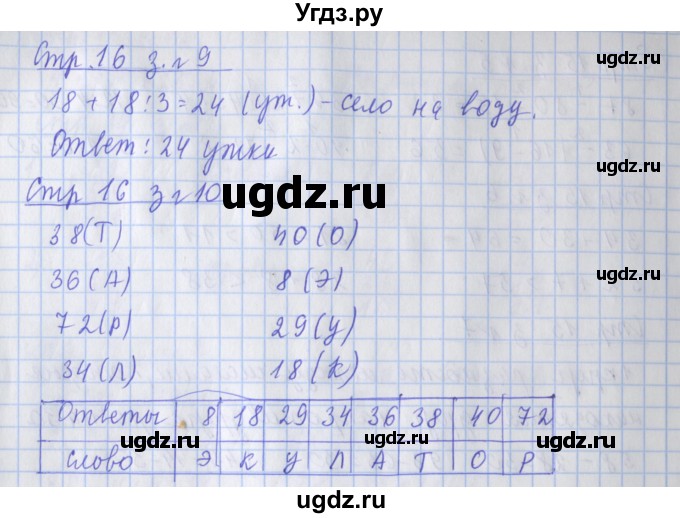 Угдз.ру
Стр. 16 з. № 9
18 + 18 : 3 = 24 (ут.) - село на воду.
Ответ: 24 утки
Стр 16 з № 10
38 (Т) 40 (О)
36 (А) 8 (Э)
72 (Р) 29 (У)
34 (Л) 18 (К)
Ответы 8 18 29 34 36 38 40 72
слово Э К У Л А Т О Р
ugdz.ru
ugdz.ru
ugdz.ru
ugdz.ru
ugdz.ru
ugdz.ru
ugdz.ru
ugdz.ru
ugdz.ru
ugdz.ru
ugdz.ru
ugdz.ru
ugdz.ru
ugdz.ru